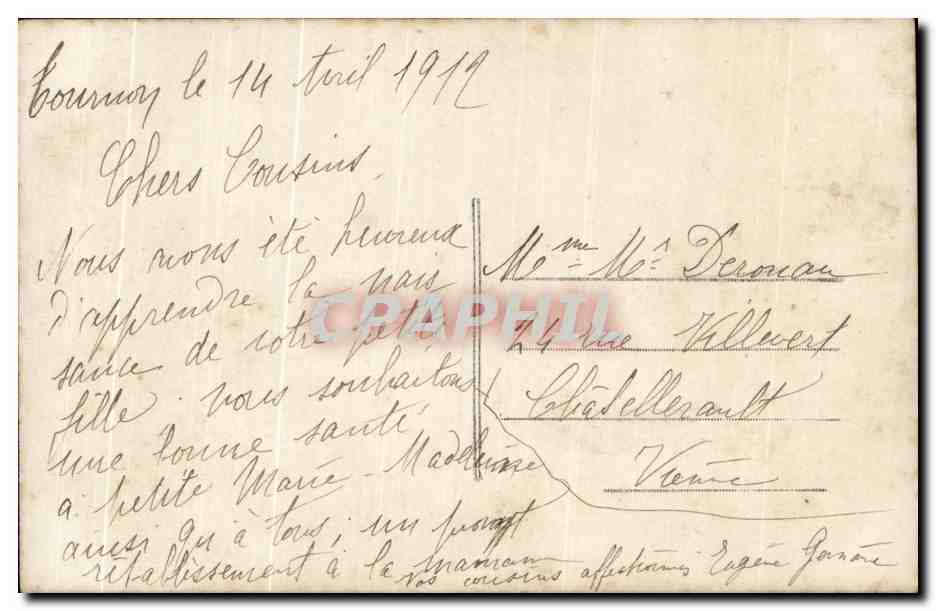 Tournon le 14 Avril 1912
Chers Cousins,
Nous avons été heureux
d'apprendre la nais
sance de votre petite
fille. nous souhaitons
une bonne santé
a petite Marie-Madeleine
ainsi qu'à tous, un prompt
rétablissement à la maman
vos cousins affectionnés Eugène
Mme Mr Derouau
24 rue Villevert
Châtellerault
Vienne
CPAPHIL